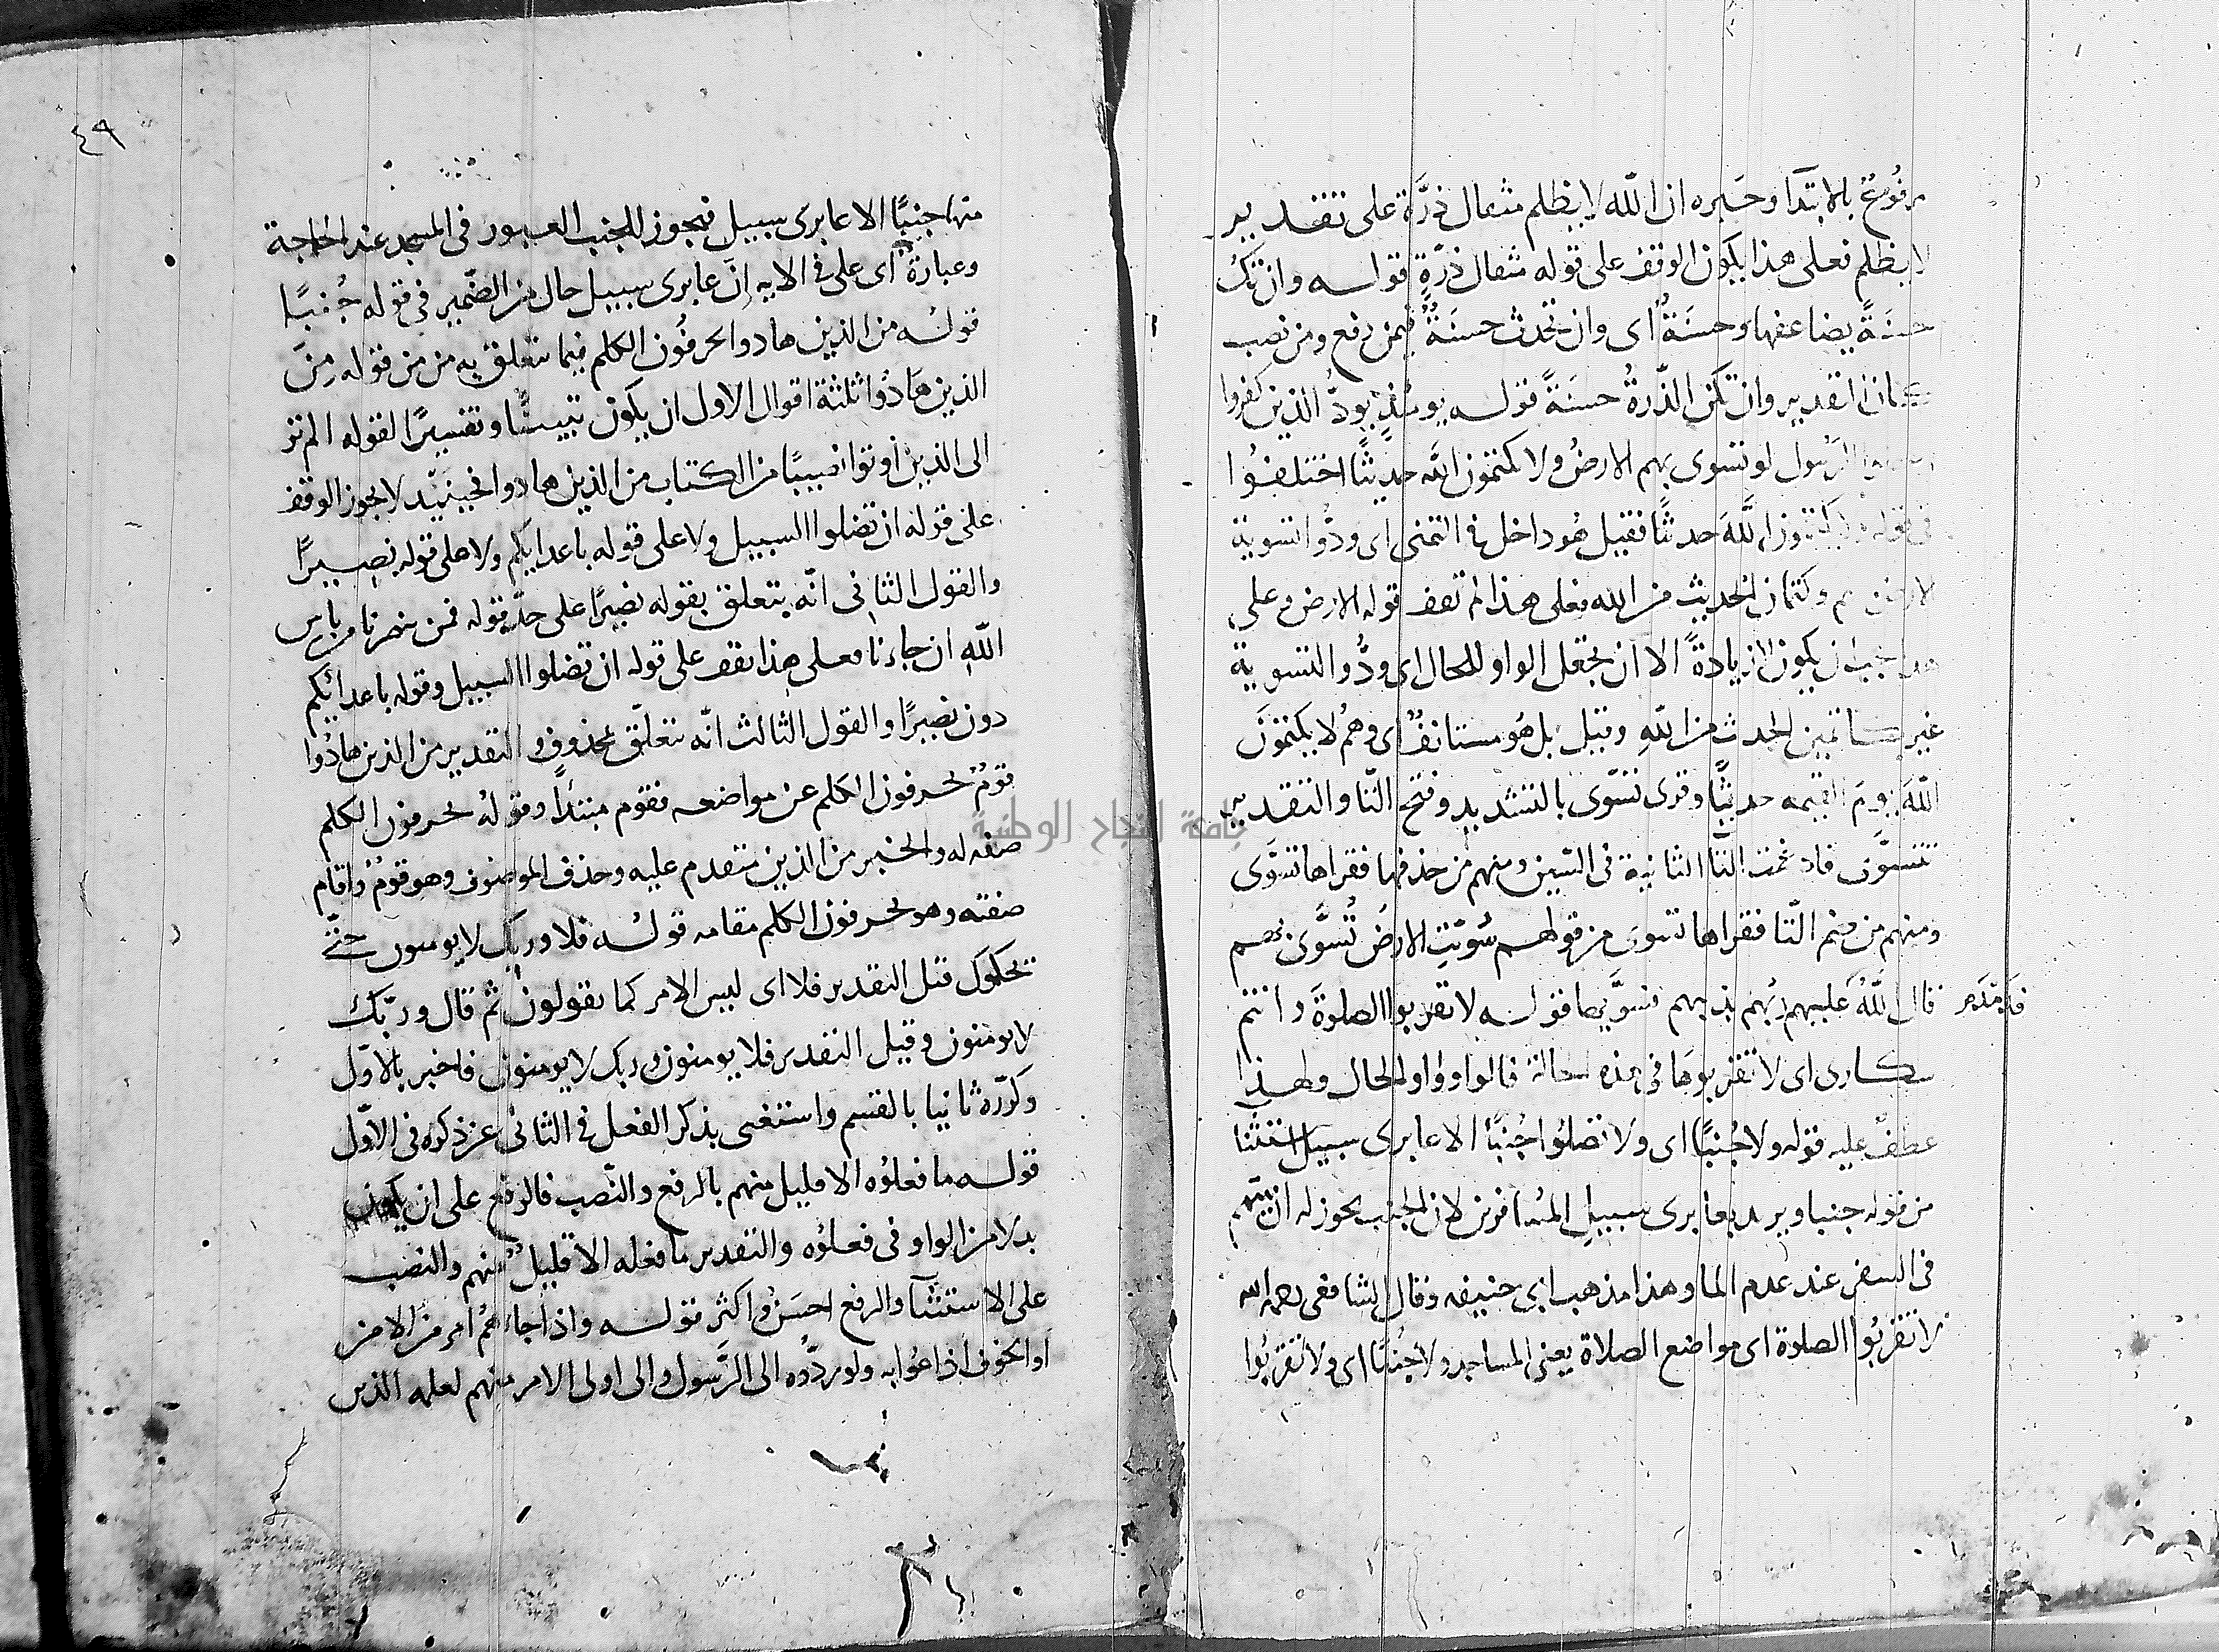 مرفوع بالابتدا وخبره ان الله لا يظلم مثقال ذرة على تقدير
لا يظلم فعلى هذا يكون الوقف على قوله مثقال ذرّةٍ قوله وان تك
حسنةً يضاعفها وحسنةٌ اى وان تحدث حسنةٌ فيمن رفع ومن نصب
كان التقدير وان تكن الذّرةُ حسنةً قوله يومئذٍ يودّ الذين كفروا
وعصوا الرسول لو تسوى بهم الارضُ ولا يكتمون الله حديثًا اختلفُوا
فى قوله ولا يكتمون اللهَ حدثًا فقيل هُو داخل فى التمنى اى ودُّوا تسوية
الارض بهم وكتمان الحديث من الله فعلى هذا لم تقف قوله الارض وعلى
هذا يجب ان يكون لا زيادةً الا ان تجعل الواو للحال اى ودُّو التسوية
غير كاتمين الحدث من اللهِ وقيل بل هُو مستانفٌ اى وهُم لا يكتمونَ
اللهَ يومَ القيمه حديثًا وقرى تسّوى بالتشديد وفتح التّا والتقدير
تتسوَّى فادغمت التّا الثانية فى السّين ومنهم من حذفها فقراها تسوَّى
ومنهم من ضم التّا فقراها تسوى من قولهم سُوّيتِ الارضُ تُسوَّى بهم
قال اللهُ عليهم ربُهم بذنبهم فسوَّيها قوله لا تقربوا الصلوةَ وانتم
فدمدم
سكارى اى لا تقربوهَا فى هذه الحالة فالواو واو الحال ولهذا
عطف عليه قوله ولا جُنبًا اى ولا تصلوُا جُنبًا الا عابرى سبيل استثنا
من قوله جنبا ويريد بعابرى سبيل المُسافرين لان الجنب يجوز له ان يتيمّم
فى السفر عند عدم الما وهذا مذهب ابى حنيفه وقال الشافعى رحمه الله
لا تقربُوا الصلوة اى مواضع الصلاة يعنى المساجد ولا جُنبًا اى ولا تقربُوا
٤٩
منها جنبًا الا عابرى سبيل فيجوز للجنب العبور فى المسجد عند الحاجة
وعبارة اى على فى الايه ان عابرى سبيل حال من الضّمير فى قوله جُنبًا
قولُه من الذين هادوا يحرفُون الكلم فيما يتعلق به من من قوله مِنَ
الذين هَادُوا ثلثة اقوال الاول ان يكون تبيينًا وتفسيرًا لقوله الم تر
الى الذين اوتوا نصيبًا من الكتاب من الذين هادوا فحينئِذ لا يجوز الوقف
على قوله ان تضلوا السبيل ولا على قوله باعدايكم ولا على قوله نصيرًا
والقول الثانى انّه يتعلق بقوله نصيرًا على حدّ قوله فمن ينصرنا من باس
اللهِ ان جاءنا فعلى هذا يقف على قوله ان تضلوا السبيل وقوله باعدائِكم
دون نصيرًا والقول الثالث انّه يتعلّق بمحذوف والتقدير من الذين هادُوا
قومٌ يحرفون الكلم عن مواضعه فقوم مبتدأً وقولُه يحرفون الكلم
صفه له والخبر من الذين متقدم عليه وحذف الموصوف وهو قومُ واقام
صفته وهو يحرفون الكلم مقامه قولُه فلا وربك لا يومنون حتّى
يحكموك قيل التقدير فلا اى ليس الامر كما يقولون ثم قال وربّك
لا يومنون وقيل التقدير فلا يومنون وربك لا يومنون فاخبر بالاوّل
وكرّره ثانيا بالقسم واستغنى بذكر الفعل فى الثانى عن ذكره فى الاوّل
قوله ما فعلوُه الا قليل منهم بالرفع والنّصب فالرفع على ان يكون
بدلا من الواو فى فعلوُه والتقدير ما فعله الا قليلٌ منهم والنصب
على الاستثنآ والرفع احسَنُ واكثر قوله واذا جاءهُم امر من الامن
او الخوف اذاعُوا به ولو ردُّوه الى الرَّسول والى اولى الامر منهم لعلمه الذين
جامعة النجاح الوطنية